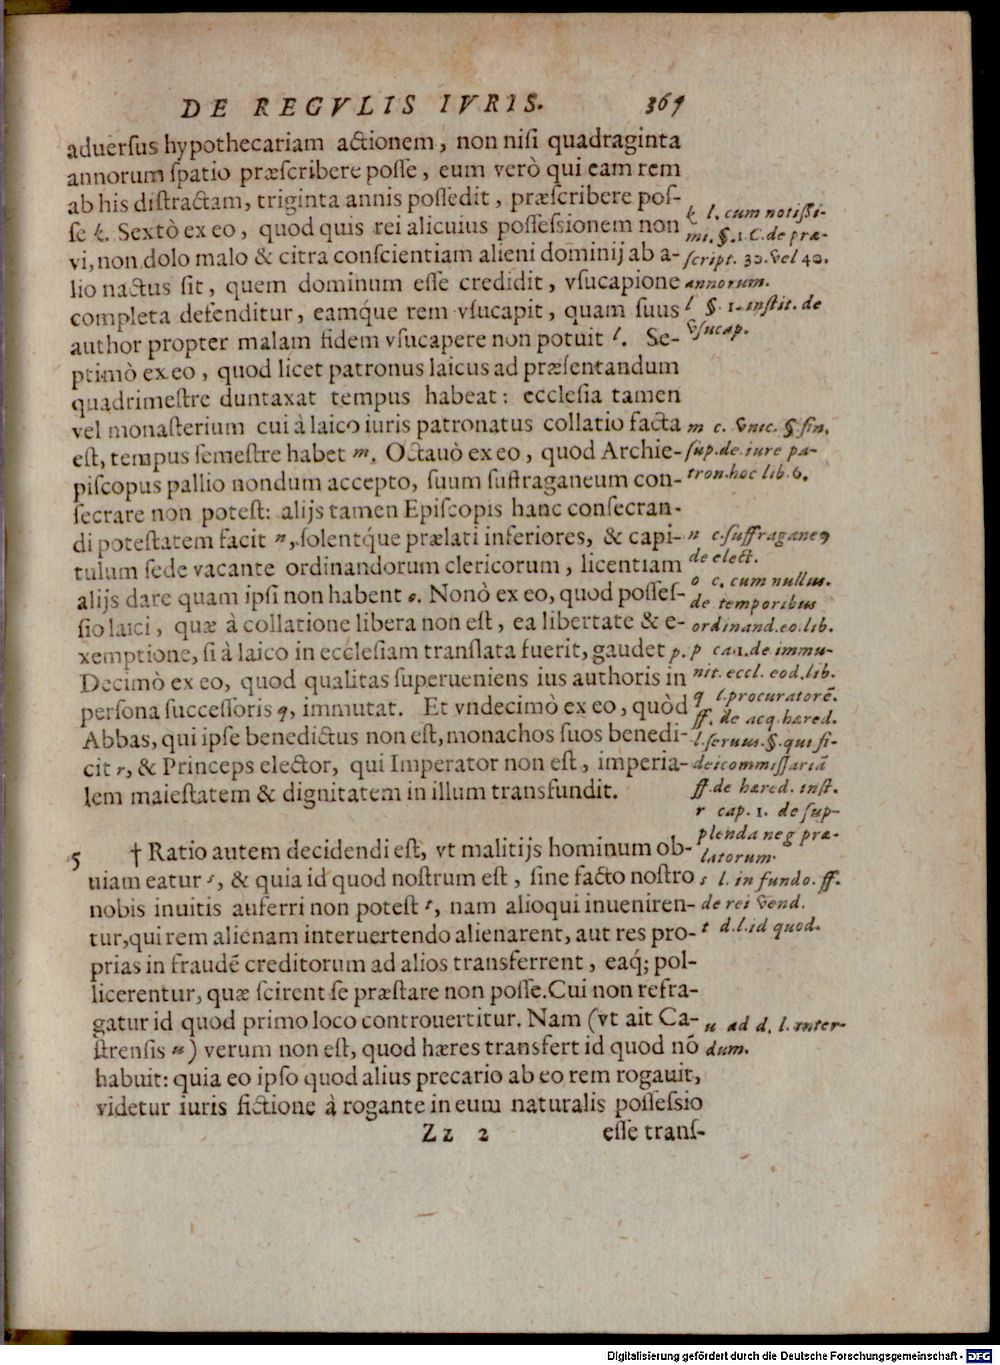 DE REGVLIS IVRIS. 365
aduersus hypothecariam actionem, non nisi quadraginta
annorum spatio præscribere posse, eum verò qui eam rem
ab his distractam, triginta annis possedit, præscribere pos-
se k. Sextò ex eo, quod quis rei alicuius possessionem non
vi, non dolo malo & citra conscientiam alieni dominij ab a-
lio nactus sit, quem dominum esse credidit, vsucapione
completa defenditur, eamq́ue rem vsucapit, quam suus
author propter malam fidem vsucapere non potuit l. Se-
ptimò ex eo, quod licet patronus laicus ad præsentandum
quadrimestre duntaxat tempus habeat: ecclesia tamen
vel monasterium cui à laico iuris patronatus collatio facta
est, tempus semestre habet m. Octauò ex eo, quod Archie-
piscopus pallio nondum accepto, suum suffraganeum con-
secrare non potest: alijs tamen Episcopis hanc consecran-
di potestatem facit n, solentq́ue prælati inferiores, & capi-
tulum sede vacante ordinandorum clericorum, licentiam
alijs dare quam ipsi non habent o. Nonò ex eo, quod posses-
sio laici, quæ à collatione libera non est, ea libertate & e-
xemptione, si à laico in ecclesiam translata fuerit, gaudet p.
Decimò ex eo, quod qualitas superueniens ius authoris in
persona successoris q, immutat. Et vndecimò ex eo, quòd
Abbas, qui ipse benedictus non est, monachos suos benedi-
cit r, & Princeps elector, qui Imperator non est, imperia-
lem maiestatem & dignitatem in illum transfundit.
5 † Ratio autem decidendi est, vt malitijs hominum ob-
uiam eatur s, & quia id quod nostrum est, sine facto nostro
nobis inuitis auferri non potest t, nam alioqui inueniren-
tur, qui rem alienam interuertendo alienarent, aut res pro-
prias in fraudē creditorum ad alios transferrent, eaq́; pol-
licerentur, quæ scirent se præstare non posse. Cui non refra-
gatur id quod primo loco controuertitur. Nam (vt ait Ca-
strensis u) verum non est, quod hæres transfert id quod nō
habuit: quia eo ipso quod alius precario ab eo rem rogauit,
videtur iuris fictione à rogante in eum naturalis possessio
Zz 2 esse trans-
k l. cum notissi-
mi. §. 1. C. de præ-
script. 30. vel 40.
annorum.
l §. 1. instit. de
vsucap.
m c. vnic. §. fin.
sup. de iure pa-
tron. hoc lib. 6.
n c. suffraganeꝰ
de elect.
o c. cum nullus.
de temporibus
ordinand. eo. lib.
p ca. 1. de immu-
nit. eccl. eod. lib.
q l. procuratorē.
ff. de acq. hæred.
l. seruus. §. qui fi-
deicommissariā
ff. de hæred. inst.
r cap. 1. de sup-
plenda neg præ-
latorum.
s l. in fundo. ff.
de rei vend.
t d. l. id quod.
u ad d. l. inter-
dum.
Digitalisierung gefördert durch die Deutsche Forschungsgemeinschaft - DFG